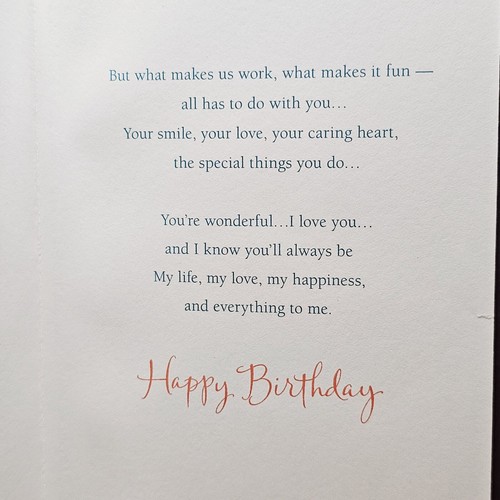 But what makes us work, what makes it fun —
all has to do with you…
Your smile, your love, your caring heart,
the special things you do…
You're wonderful…I love you…
and I know you'll always be
My life, my love, my happiness,
and everything to me.
Happy Birthday